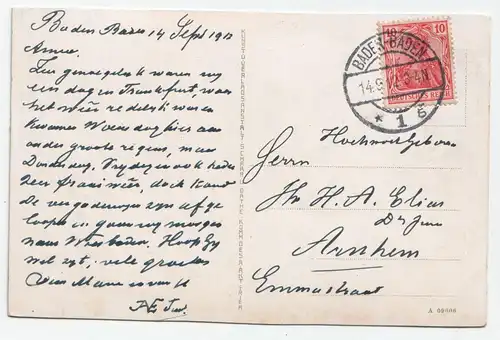 Baden Baden 14 Sept 1912
Amice
Zeer genoegelijk waren wij
een dag in Frankfurt, waar
het weer redelijk was
kwamen Woensdag hier aan
onder groote regens, maar
Donderdag, Vrijdag en ook heden
zeer fraai weer, doch koud
De vergaderingen zijn afge
loopen en gaan wij morgen
naar Wiesbaden. Hoop gij
wel zijt, vele groeten
van Mama en van uw
AE Jzn.
KUNST- U. VERLAGSANSTALT SCHAAR & DATHE, KOMM.-GES. A. AKT., TRIER
BADEN-BADEN
14.9.12. 3-4 N
* 1 g
10
DEUTSCHES REICH
Hochwohlgeboren
Herrn
Mr H. A. Elias
Dzn
Arnhem
Emmastraat